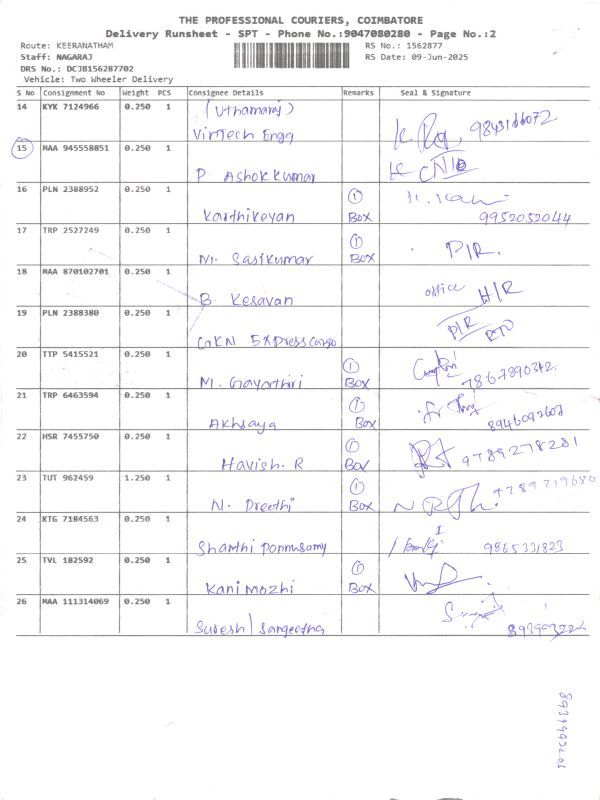 THE PROFESSIONAL COURIERS, COIMBATORE
Delivery Runsheet - SPT - Phone No.:9047080280 - Page No.:2
Route: KEERANATHAM RS No.: 1562877
Staff: NAGARAJ RS Date: 09-Jun-2025
DRS No.: DCJB156287702
Vehicle: Two Wheeler Delivery
S No Consignment No Weight PCS Consignee Details Remarks Seal & Signature
14 KYK 7124966 0.250 1 (Uthamaraj)
VinTech Engg
15 MAA 945558851 0.250 1
P. Ashokkumar
16 PLN 2388952 0.250 1 1
Karthikeyan Box 9952052044
17 TRP 2527249 0.250 1 1
M. Sasikumar Box P/R.
18 MAA 870102701 0.250 1 office H/R
B. Kesavan
19 PLN 2388380 0.250 1 P/R
Express Cargo
20 TTP 5415521 0.250 1 1
M. Gayathiri Box 7867890342
21 TRP 6463594 0.250 1 1
Akhsaya Box
22 HSR 7455750 0.250 1 1 9789278281
Havish. R Box
23 TUT 962459 1.250 1 1
N. Preethi Box
24 KTG 7184563 0.250 1
Sharthi Ponnusamy 9865331823
25 TVL 182592 0.250 1 1
Kanimozhi Box
26 MAA 111314069 0.250 1
Suresh / Sangeetha